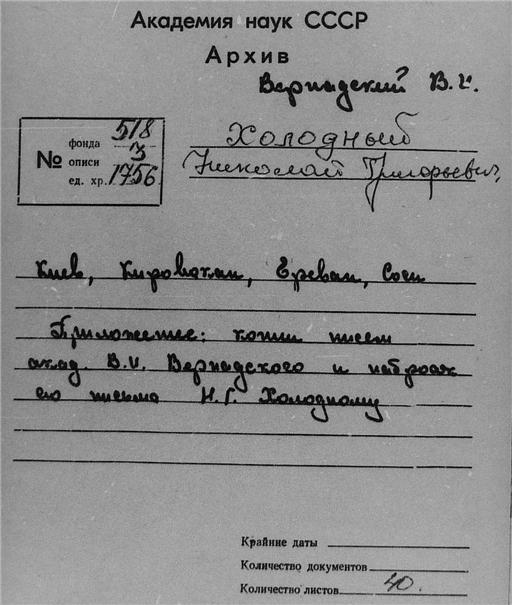 Академия наук СССР
Архив
Вернадский В.И.
фонда 518
№ описи 3
ед. хр. 1756
Холодный
Николай Григорьевич,
Киев, Кировакан, Ереван, Сочи
Приложение: копии писем
акад. В.И. Вернадского и набросок
его письма Н.Г. Холодному
Крайние даты
Количество документов
Количество листов 40.